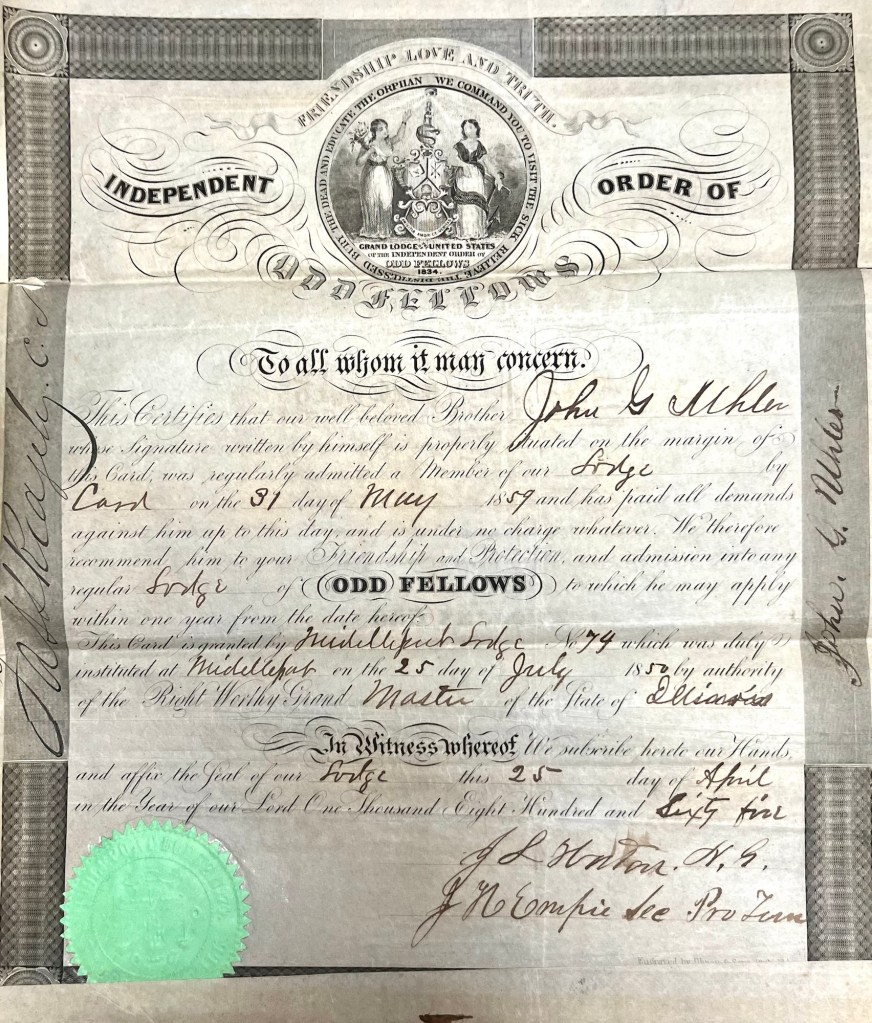 FRIENDSHIP LOVE AND TRUTH.
WE COMMAND YOU TO VISIT THE SICK RELIEVE THE DISTRESSED BURY THE DEAD AND EDUCATE THE ORPHAN
INDEPENDENT ORDER OF
GRAND LODGE OF THE UNITED STATES
OF THE INDEPENDENT ORDER OF
ODD FELLOWS
1834.
ODD FELLOWS
To all whom it may concern.
This Certifies that our well beloved Brother John G Uhler
whose Signature written by himself is properly situated on the margin of
this Card, was regularly admitted a Member of our Lodge by
Card on the 31 day of May 1859 and has paid all demands
against him up to this day, and is under no charge whatever. We therefore
recommend him to your Friendship and Protection, and admission into any
regular Lodge of ODD FELLOWS to which he may apply
within one year from the date hereof.
This Card is granted by Lodge No 74 which was duly
instituted at on the 25 day of July 1850 by authority
of the Right Worthy Grand Master of the State of Illinois
In Witness whereof We subscribe hereto our Hands,
and affix the Seal of our Lodge this 25 day of April
in the Year of our Lord One Thousand Eight Hundred and Sixty five
J L N. G.
J H Empie Sec Pro Tem
John. G. Uhler
Engraved by